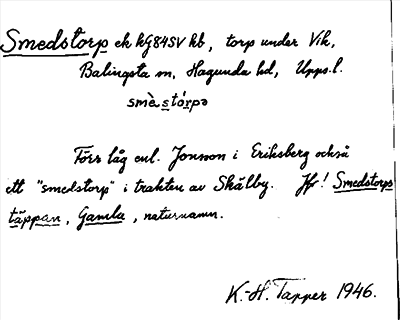 Smedstorp ek kg84SV kb, torp under Vik,
Balingsta sn, Hagunda hd, Upps.l.
smè stórpə
Förr låg enl. Jonsson i Eriksberg också
ett "smedstorp" i trakten av Skälby. Jfr! Smedstorps
täppan, Gamla, naturnamn.
K.-H. Tapper 1946.